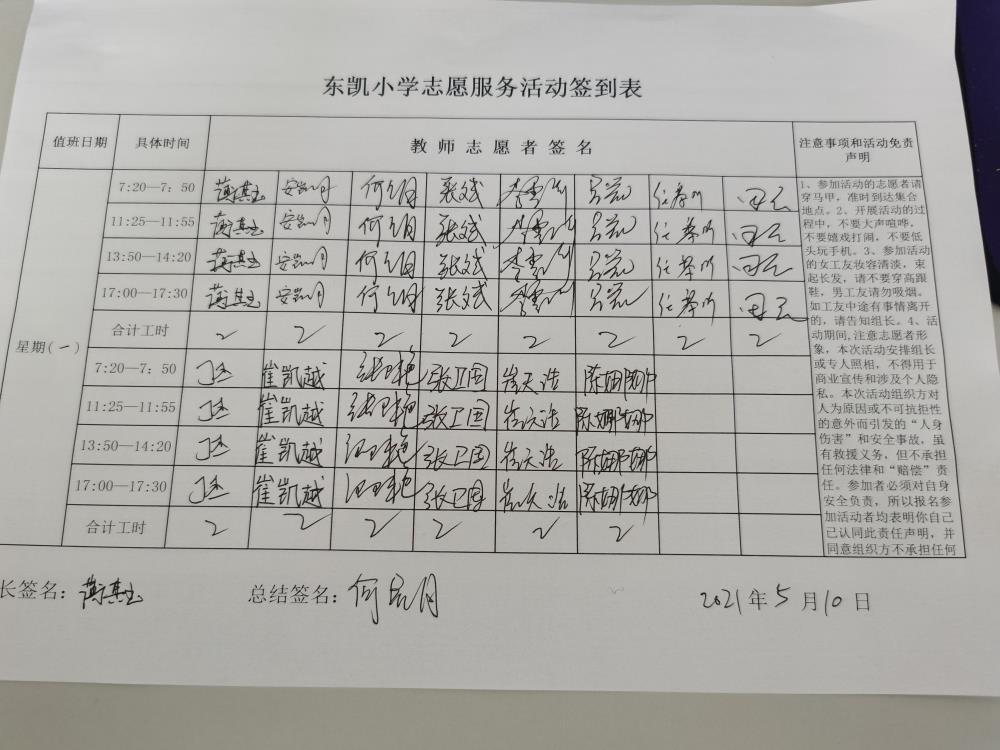 东凯小学志愿服务活动签到表
值班日期 具体时间 教师志愿者签名 注意事项和活动免责声明
星期(一)
7:20—7：50 安凯月 张文斌
11:25—11:55 安凯月 张文斌
13:50—14:20 安凯月 张文斌
17:00—17:30 安凯月 张文斌
合计工时 2 2 2 2 2 2 2 2
7:20—7：50 崔凯越 张卫国 陈娜娜
11:25—11:55 崔凯越 张卫国 陈娜娜
13:50—14:20 崔凯越 张卫国 陈娜娜
17:00—17:30 崔凯越 张卫国 陈娜娜
合计工时 2 2 2 2 2 2
1、参加活动的志愿者请
穿马甲，准时到达集合
地点。2、开展活动的过
程中，不要大声喧哗，
不要嬉戏打闹，不要低
头玩手机。3、参加活动
的女工友妆容清淡，束
起长发，请不要穿高跟
鞋，男工友请勿吸烟。
如工友中途有事情离开
的，请告知组长。4、活
动期间,注意志愿者形
象，本次活动安排组长
或专人照相，不得用于
商业宣传和涉及个人隐
私。本次活动组织方对
人为原因或不可抗拒性
的意外而引发的“人身
伤害”和安全事故，虽
有救援义务，但不承担
任何法律和“赔偿”责
任。参加者必须对自身
安全负责，所以报名参
加活动者均表明你自己
已认同此责任声明，并
同意组织方不承担任何
长签名： 总结签名： 2021年5月10日